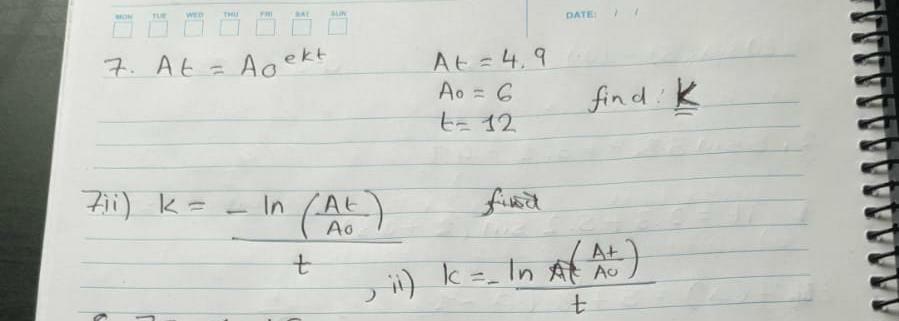 MON TUE WED THU FRI SAT SUN
DATE: / /
7. At = Ao ekt
At = 4.9
Ao = 6
t = 12
find: k
7ii) k = - ln (At/Ao) / t
find
, ii) k = - ln At (At/Ao) / t